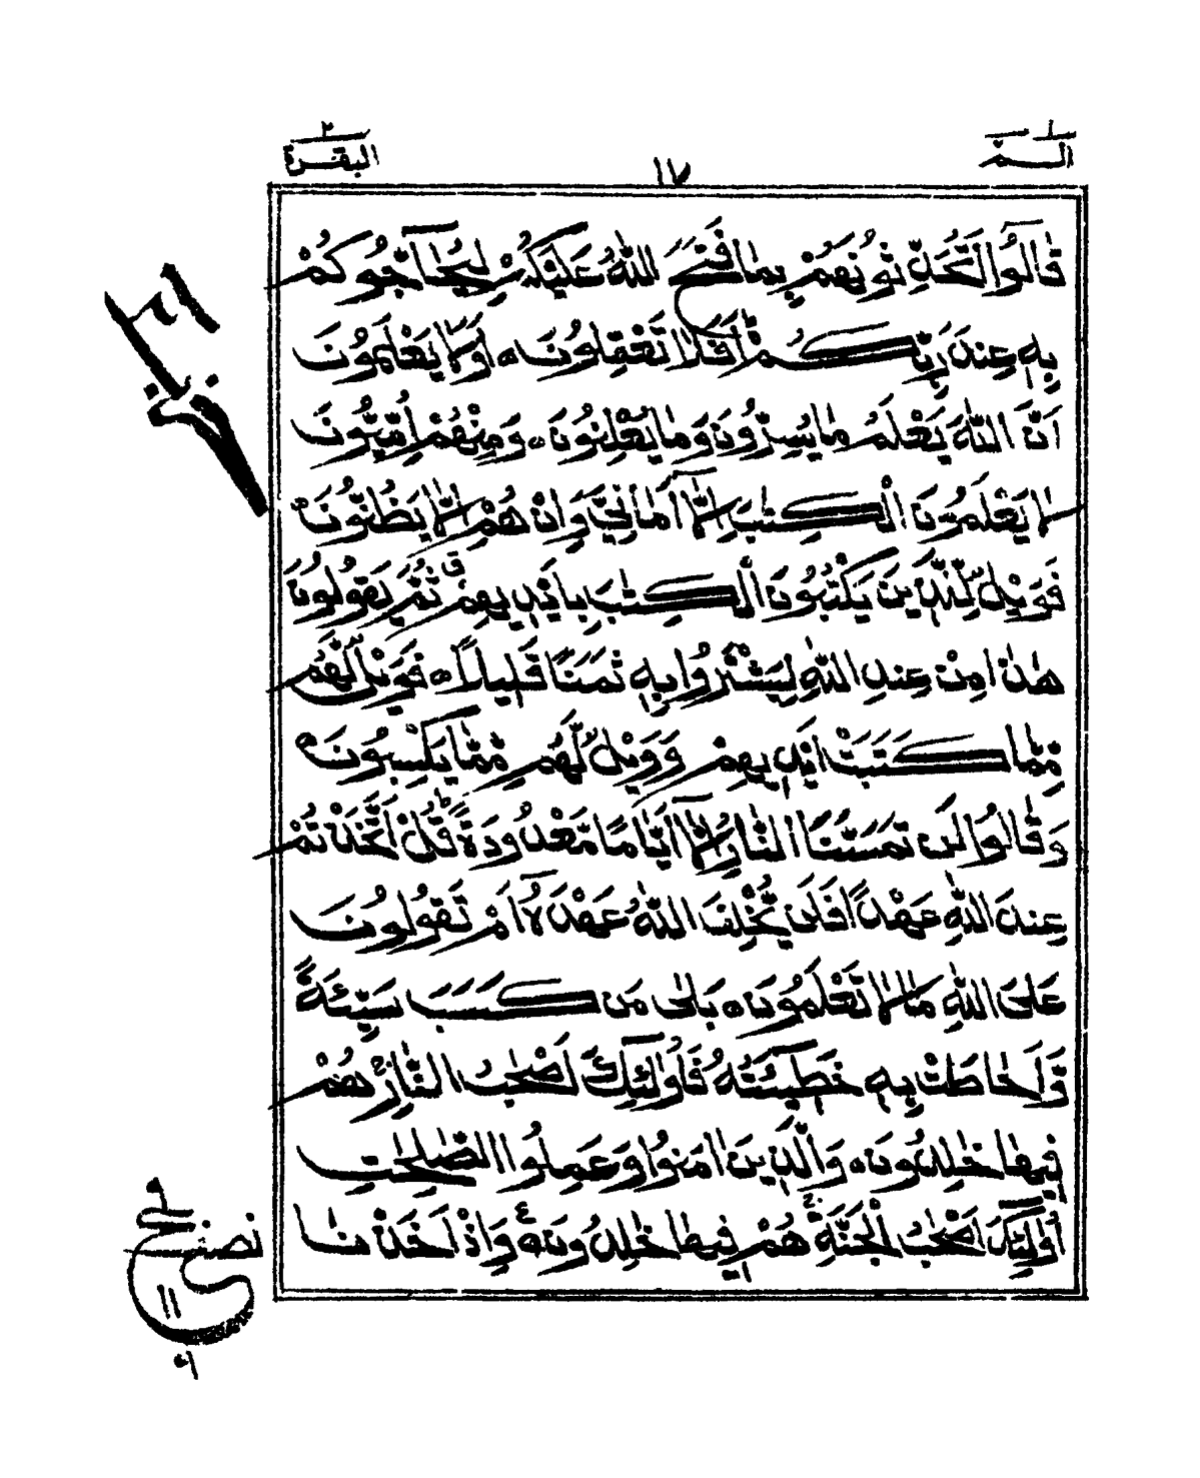 الٓمّٓ ١
١٧
البقرة ٢
قَالُوْٓا اَتُحَدِّثُوْنَهُمْ بِمَا فَتَحَ اللّٰهُ عَلَيْكُمْ لِيُحَآجُّوْكُمْ
بِهٖ عِنْدَ رَبِّكُمْ ؕ اَفَلَا تَعْقِلُوْنَ ۝ اَوَلَا يَعْلَمُوْنَ
اَنَّ اللّٰهَ يَعْلَمُ مَا يُسِرُّوْنَ وَمَا يُعْلِنُوْنَ ۝ وَمِنْهُمْ اُمِّيُّوْنَ
لَا يَعْلَمُوْنَ الْكِتٰبَ اِلَّآ اَمَانِيَّ وَاِنْ هُمْ اِلَّا يَظُنُّوْنَ ۝
فَوَيْلٌ لِّلَّذِيْنَ يَكْتُبُوْنَ الْكِتٰبَ بِاَيْدِيْهِمْ ۗ ثُمَّ يَقُوْلُوْنَ
هٰذَا مِنْ عِنْدِ اللّٰهِ لِيَشْتَرُوْا بِهٖ ثَمَنًا قَلِيْلًا ۝ فَوَيْلٌ لَّهُمْ
مِّمَّا كَتَبَتْ اَيْدِيْهِمْ وَوَيْلٌ لَّهُمْ مِّمَّا يَكْسِبُوْنَ ۝
وَقَالُوْا لَنْ تَمَسَّنَا النَّارُ اِلَّآ اَيَّامًا مَّعْدُوْدَةً ؕ قُلْ اَتَّخَذْتُمْ
عِنْدَ اللّٰهِ عَهْدًا فَلَنْ يُّخْلِفَ اللّٰهُ عَهْدَهٗٓ اَمْ تَقُوْلُوْنَ
عَلَى اللّٰهِ مَا لَا تَعْلَمُوْنَ ۝ بَلٰى مَنْ كَسَبَ سَيِّئَةً
وَّاَحَاطَتْ بِهٖ خَطِيْٓئَتُهٗ فَاُولٰٓئِكَ اَصْحٰبُ النَّارِ ۚ هُمْ
فِيْهَا خٰلِدُوْنَ ۝ وَالَّذِيْنَ اٰمَنُوْا وَعَمِلُوا الصّٰلِحٰتِ
اُولٰٓئِكَ اَصْحٰبُ الْجَنَّةِ ۚ هُمْ فِيْهَا خٰلِدُوْنَ ۝ ع وَاِذْ اَخَذْنَا